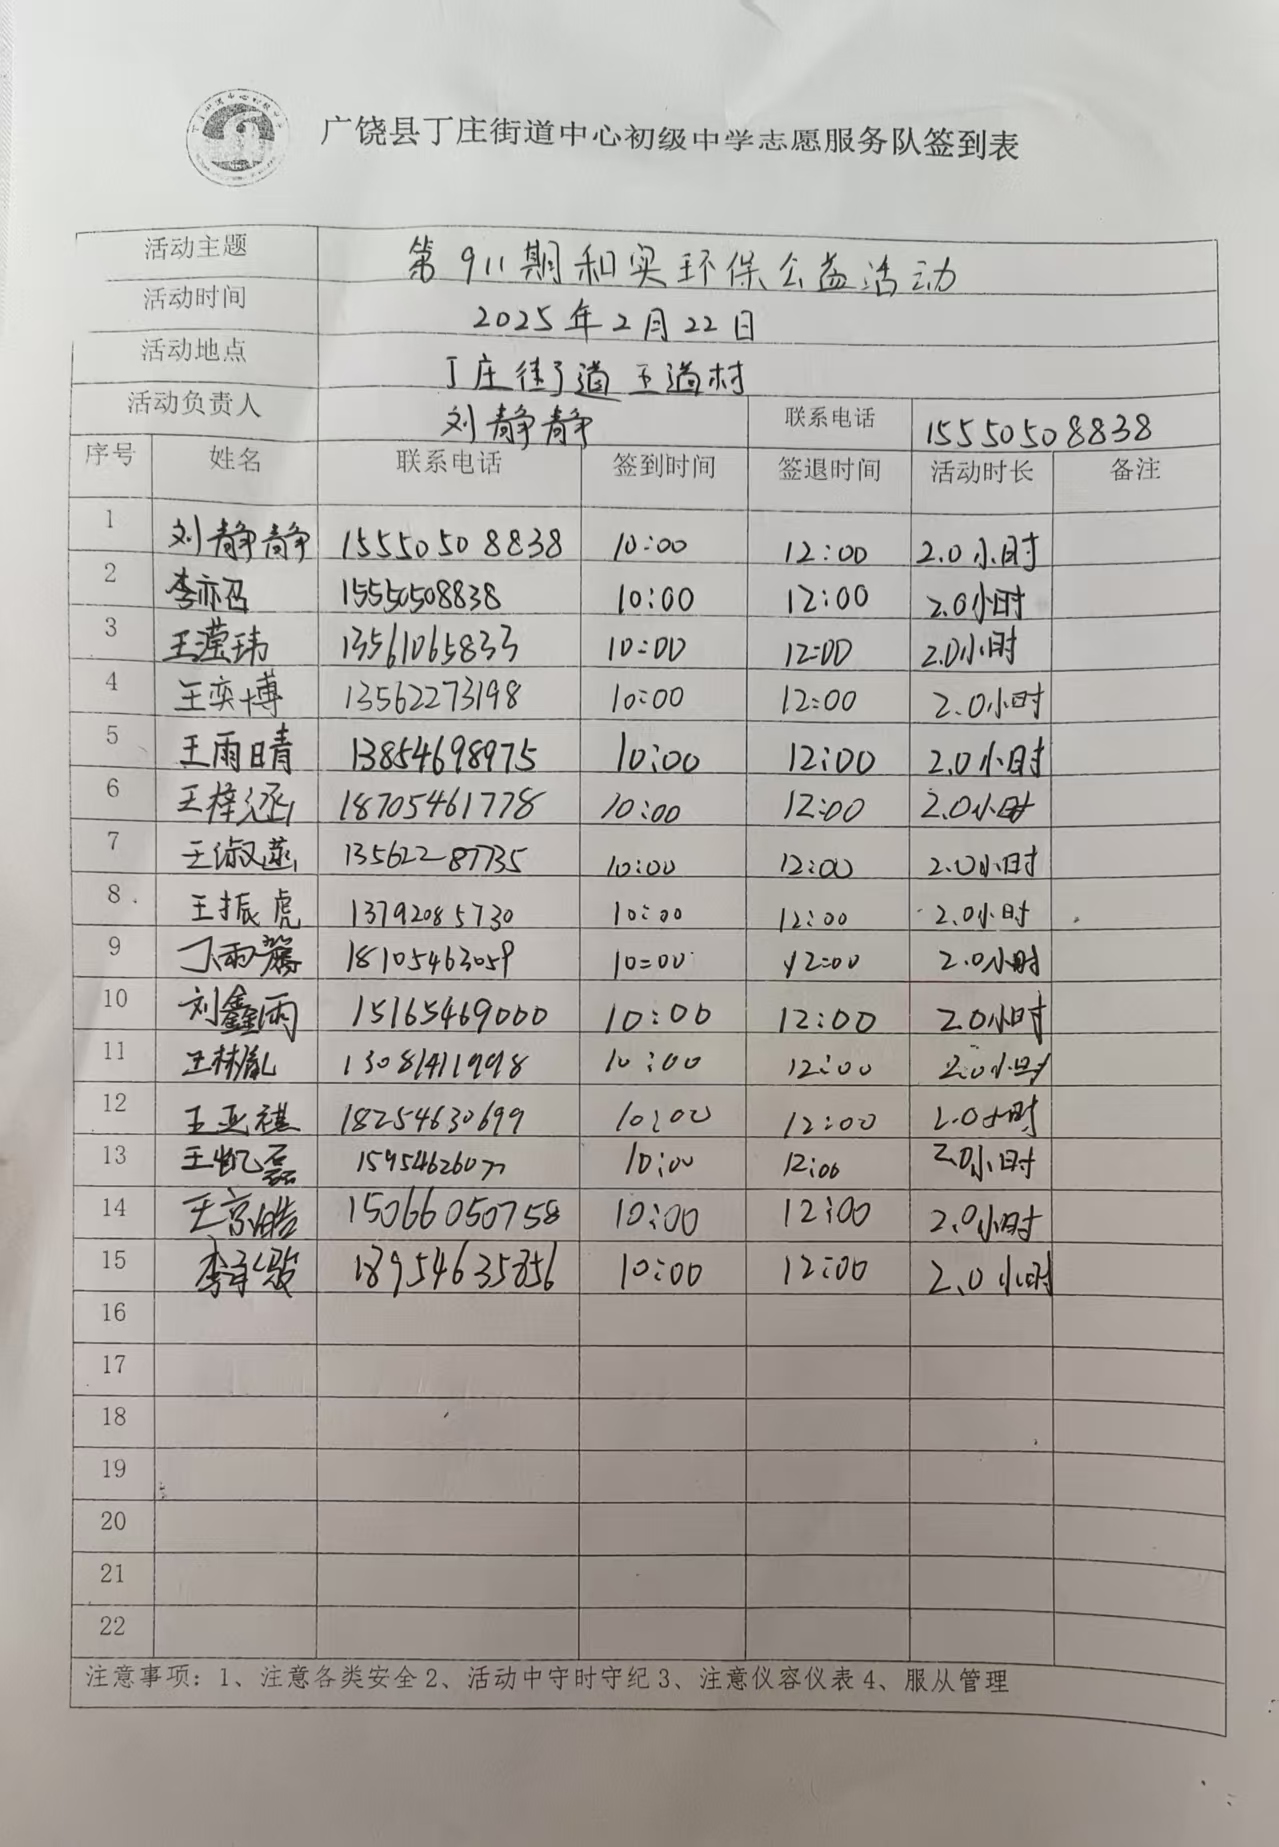 广饶县丁庄街道中心初级中学志愿服务队签到表
活动主题 第911期和实环保公益活动
活动时间 2025年2月22日
活动地点 丁庄街道王道村
活动负责人 刘静静 联系电话 15550508838
序号 姓名 联系电话 签到时间 签退时间 活动时长 备注
1 刘静静 15550508838 10:00 12:00 2.0小时
2 李亦召 15550508838 10:00 12:00 2.0小时
3 王滢玮 13561065833 10:00 12:00 2.0小时
4 王奕博 13562273198 10:00 12:00 2.0小时
5 王雨晴 13854698975 10:00 12:00 2.0小时
6 王梓丞 18705461778 10:00 12:00 2.0小时
7 王淑 13562287735 10:00 12:00 2.0小时
8 王振虎 13792085730 10:00 12:00 2.0小时
9 丁雨 18105463059 10:00 12:00 2.0小时
10 刘鑫雨 15165469000 10:00 12:00 2.0小时
11 王林胤 13081411998 10:00 12:00 2.0小时
12 王亚祺 18254630699 10:00 12:00 2.0小时
13 王凯磊 10:00 12:00 2.0小时
14 王京皓 15066050758 10:00 12:00 2.0小时
15 李承骏 18954635856 10:00 12:00 2.0小时
16
17
18
19
20
21
22
注意事项：1、注意各类安全2、活动中守时守纪3、注意仪容仪表4、服从管理